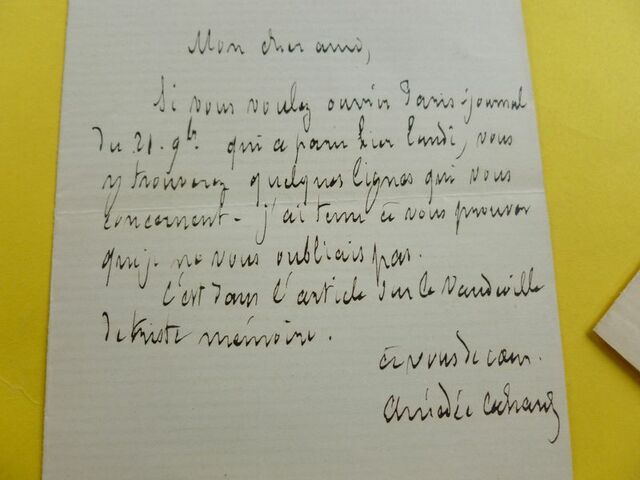 Mon cher ami,
Si vous voulez ouvrir Paris-journal
du 21. 9bre qui a paru hier lundi, vous
y trouverez quelques lignes qui vous
concernent - j'ai tenu à vous prouver
que je ne vous oubliais pas.
C'est dans l'article sur le Vaudeville
de triste mémoire.
à vous de cœur.
Amédée Achard